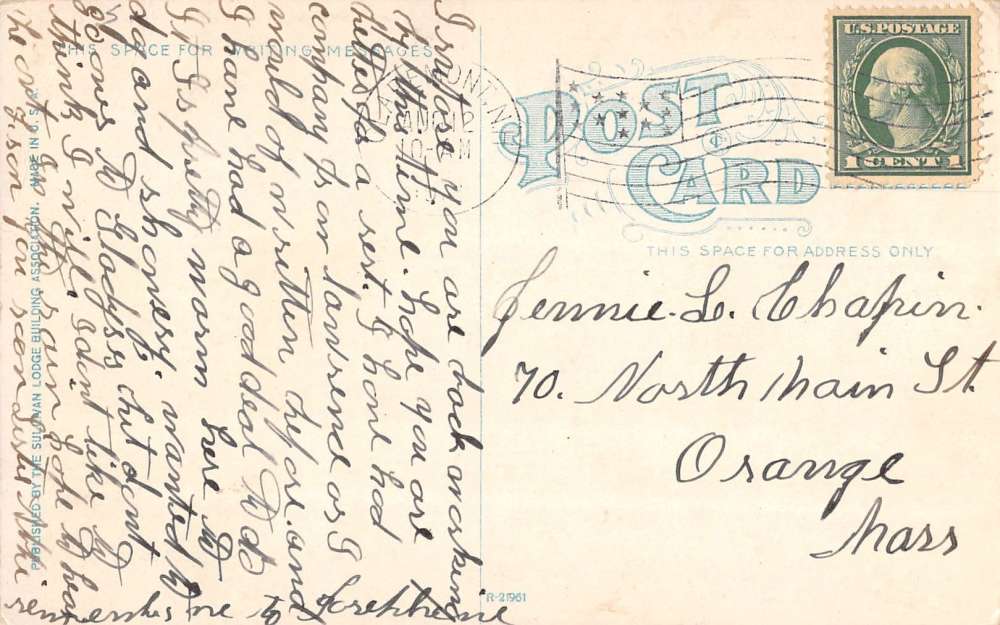 THIS SPACE FOR WRITING MESSAGES
I suppose you are back working
by this time. hope you are
a rest. I have had
company from Lawrence or I
would of written before. and
I have had a good deal to do
It is pretty warm here to
day and showery. wanted to
go over to Gladyss but dont
think I will. I dont like to
go out in the rain hope to hear
from you soon
remember me to Josephine
PUBLISHED BY THE SULLIVAN LODGE BUILDING ASSOCIATION. MADE IN U.S.A.
POST CARD
U.S. POSTAGE
1 CENT 1
THIS SPACE FOR ADDRESS ONLY
Jennie. L. Chapin.
70. North Main St.
Orange
Mass
R-21961